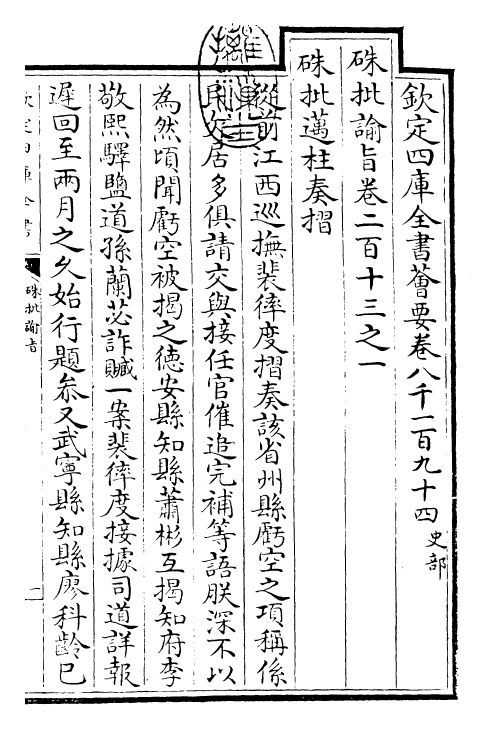 欽定四庫全書薈要卷八千一百九十四 史部
硃批諭旨卷二百十三之一
硃批邁柱奏摺
從前江西巡撫裴𢕋度摺奏該省州縣虧空之項稱係
民欠居多俱請交與接任官催追完補等語朕深不以
為然頃聞虧空被揭之德安縣知縣蕭彬互揭知府李
敬熙驛鹽道孫蘭苾詐贓一案裴𢕋度接據司道詳報
遲回至兩月之久始行題叅又武寧縣知縣廖科齡已
欽定四庫全書
硃批諭旨
一